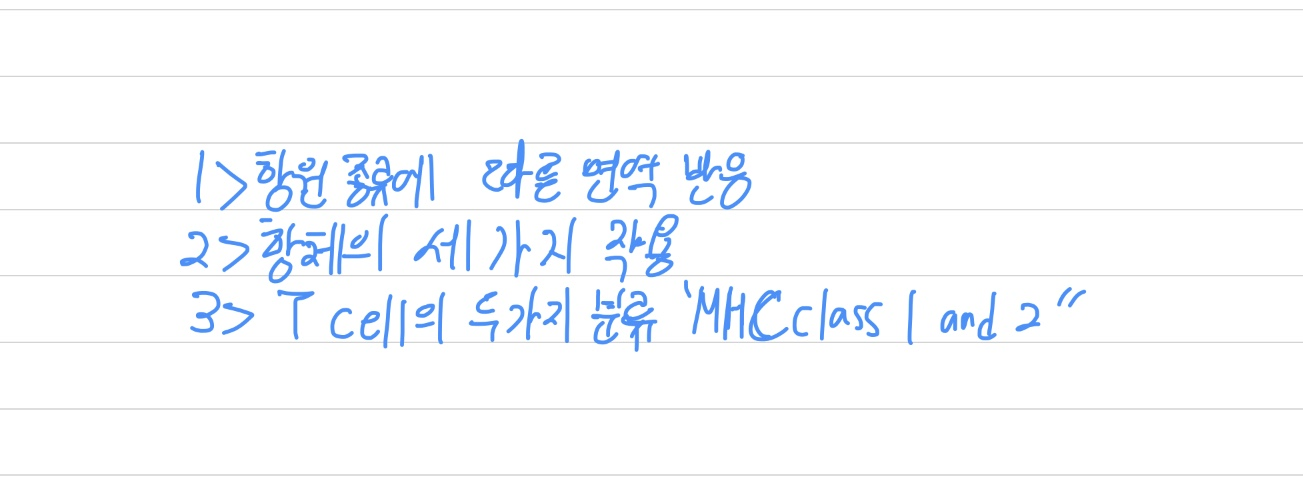 1>항원 종류에 따른 면역 반응
2>항체의 세 가지 작용
3> T cell의 두가지 분류 "MHC class 1 and 2"